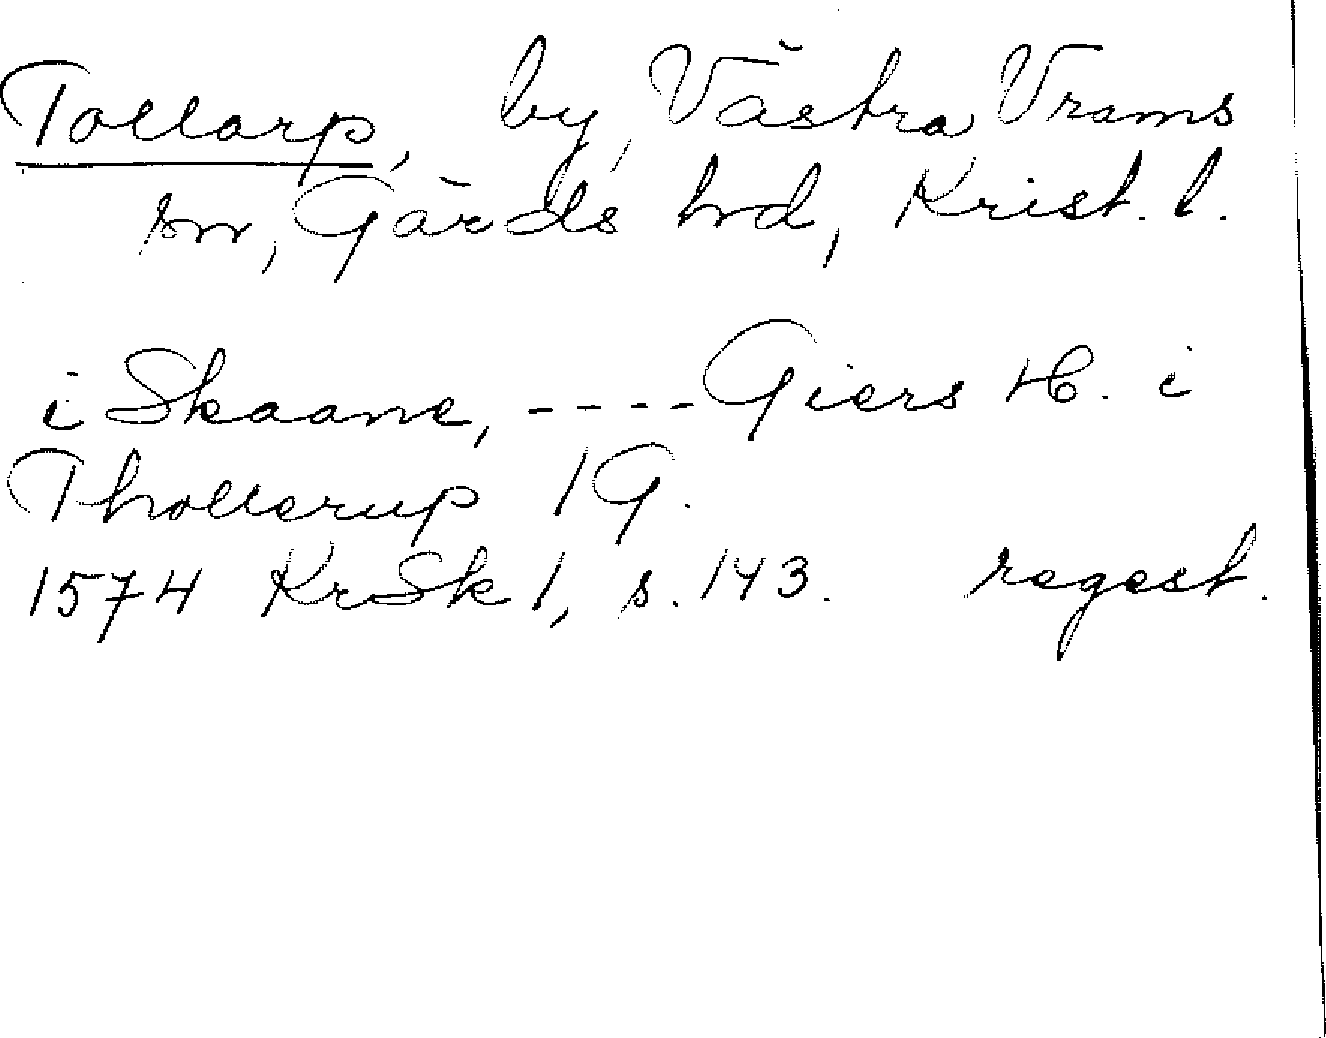 Tollarp, by, Västra Vrams
sn, Gärds hd, Krist. l.
i Skaane, ---- Giers H. i
Thollerup 1 G.
1574 KrSk 1, s. 143. regest.